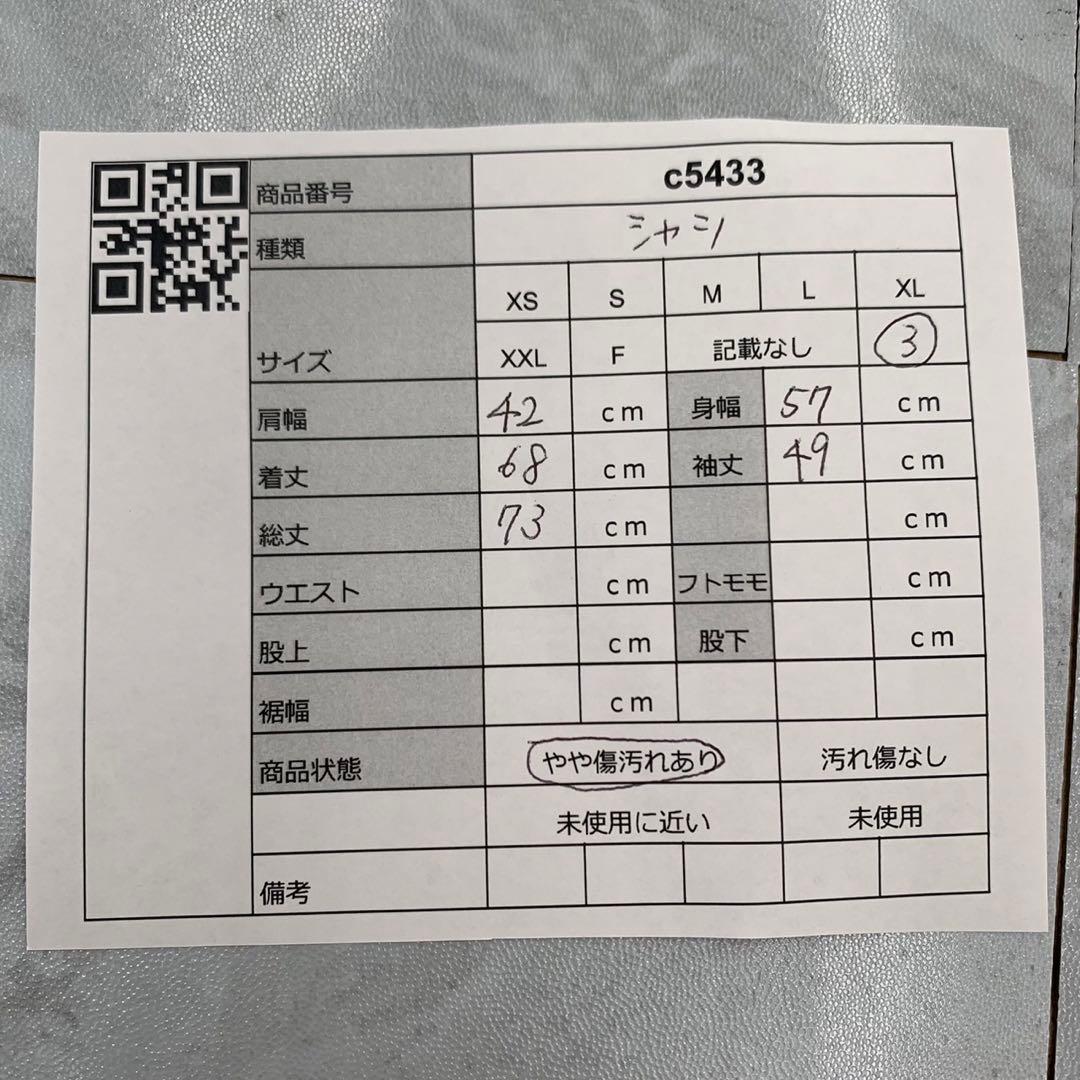 商品番号 c5433
種類 シャツ
XS S M L XL
サイズ XXL F 記載なし 3
肩幅 42 cm 身幅 57 cm
着丈 68 cm 袖丈 49 cm
総丈 73 cm cm
ウエスト cm フトモモ cm
股上 cm 股下 cm
裾幅 cm
商品状態 やや傷汚れあり 汚れ傷なし
未使用に近い 未使用
備考